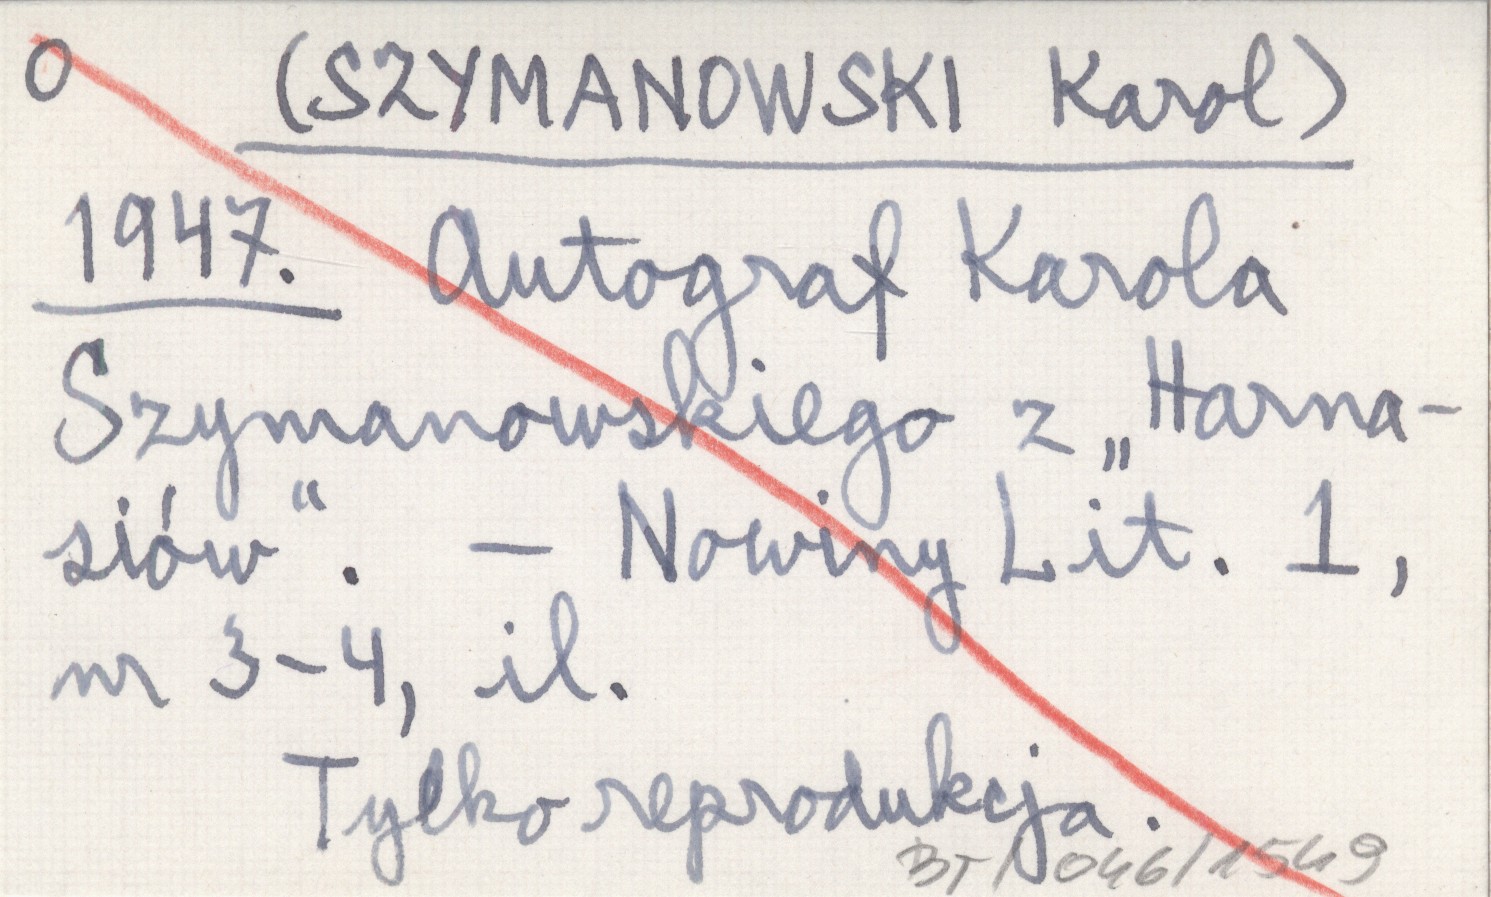 O (SZYMANOWSKI Karol)
1947. Autograf Karola
Szymanowskiego z „Harna-
siów“. — Nowiny Lit. 1,
nr 3-4, il.
Tylko reprodukcja.
BT/046/1549